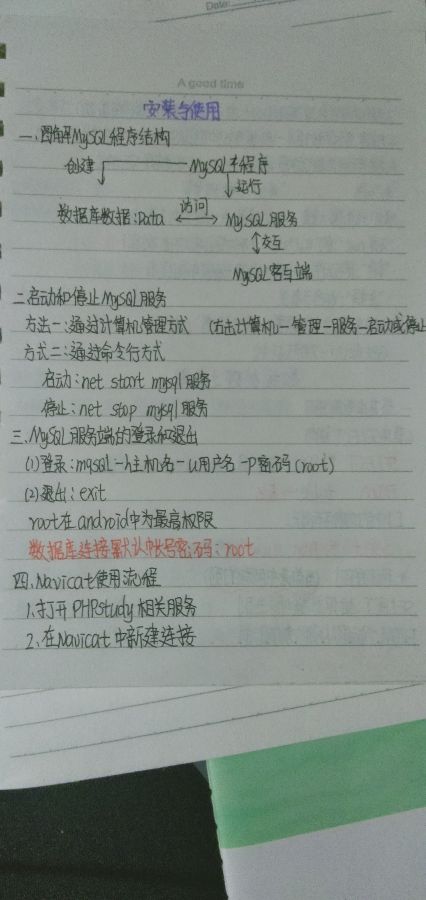 Date:
A good time
安装与使用
一、图解MySQL程序结构
创建 MySQL本程序
运行
数据库数据:Data 访问 MySQL服务
交互
MySQL客互端
二、启动和停止MySQL服务
方法一:通过计算机管理方式 (右击计算机-管理-服务-启动或停止
方式二:通过命令行方式
启动:net start mysql服务
停止:net stop mysql服务
三、MySQL服务端的登录和退出
(1)登录:mqsql-h主机名-u用户名-p密码(root)
(2)退出:exit
root在android中为最高权限
数据库连接默认帐号密码:root
四、Navicat使用流程
1、打开PHPStudy相关服务
2、在Navicat中新建连接